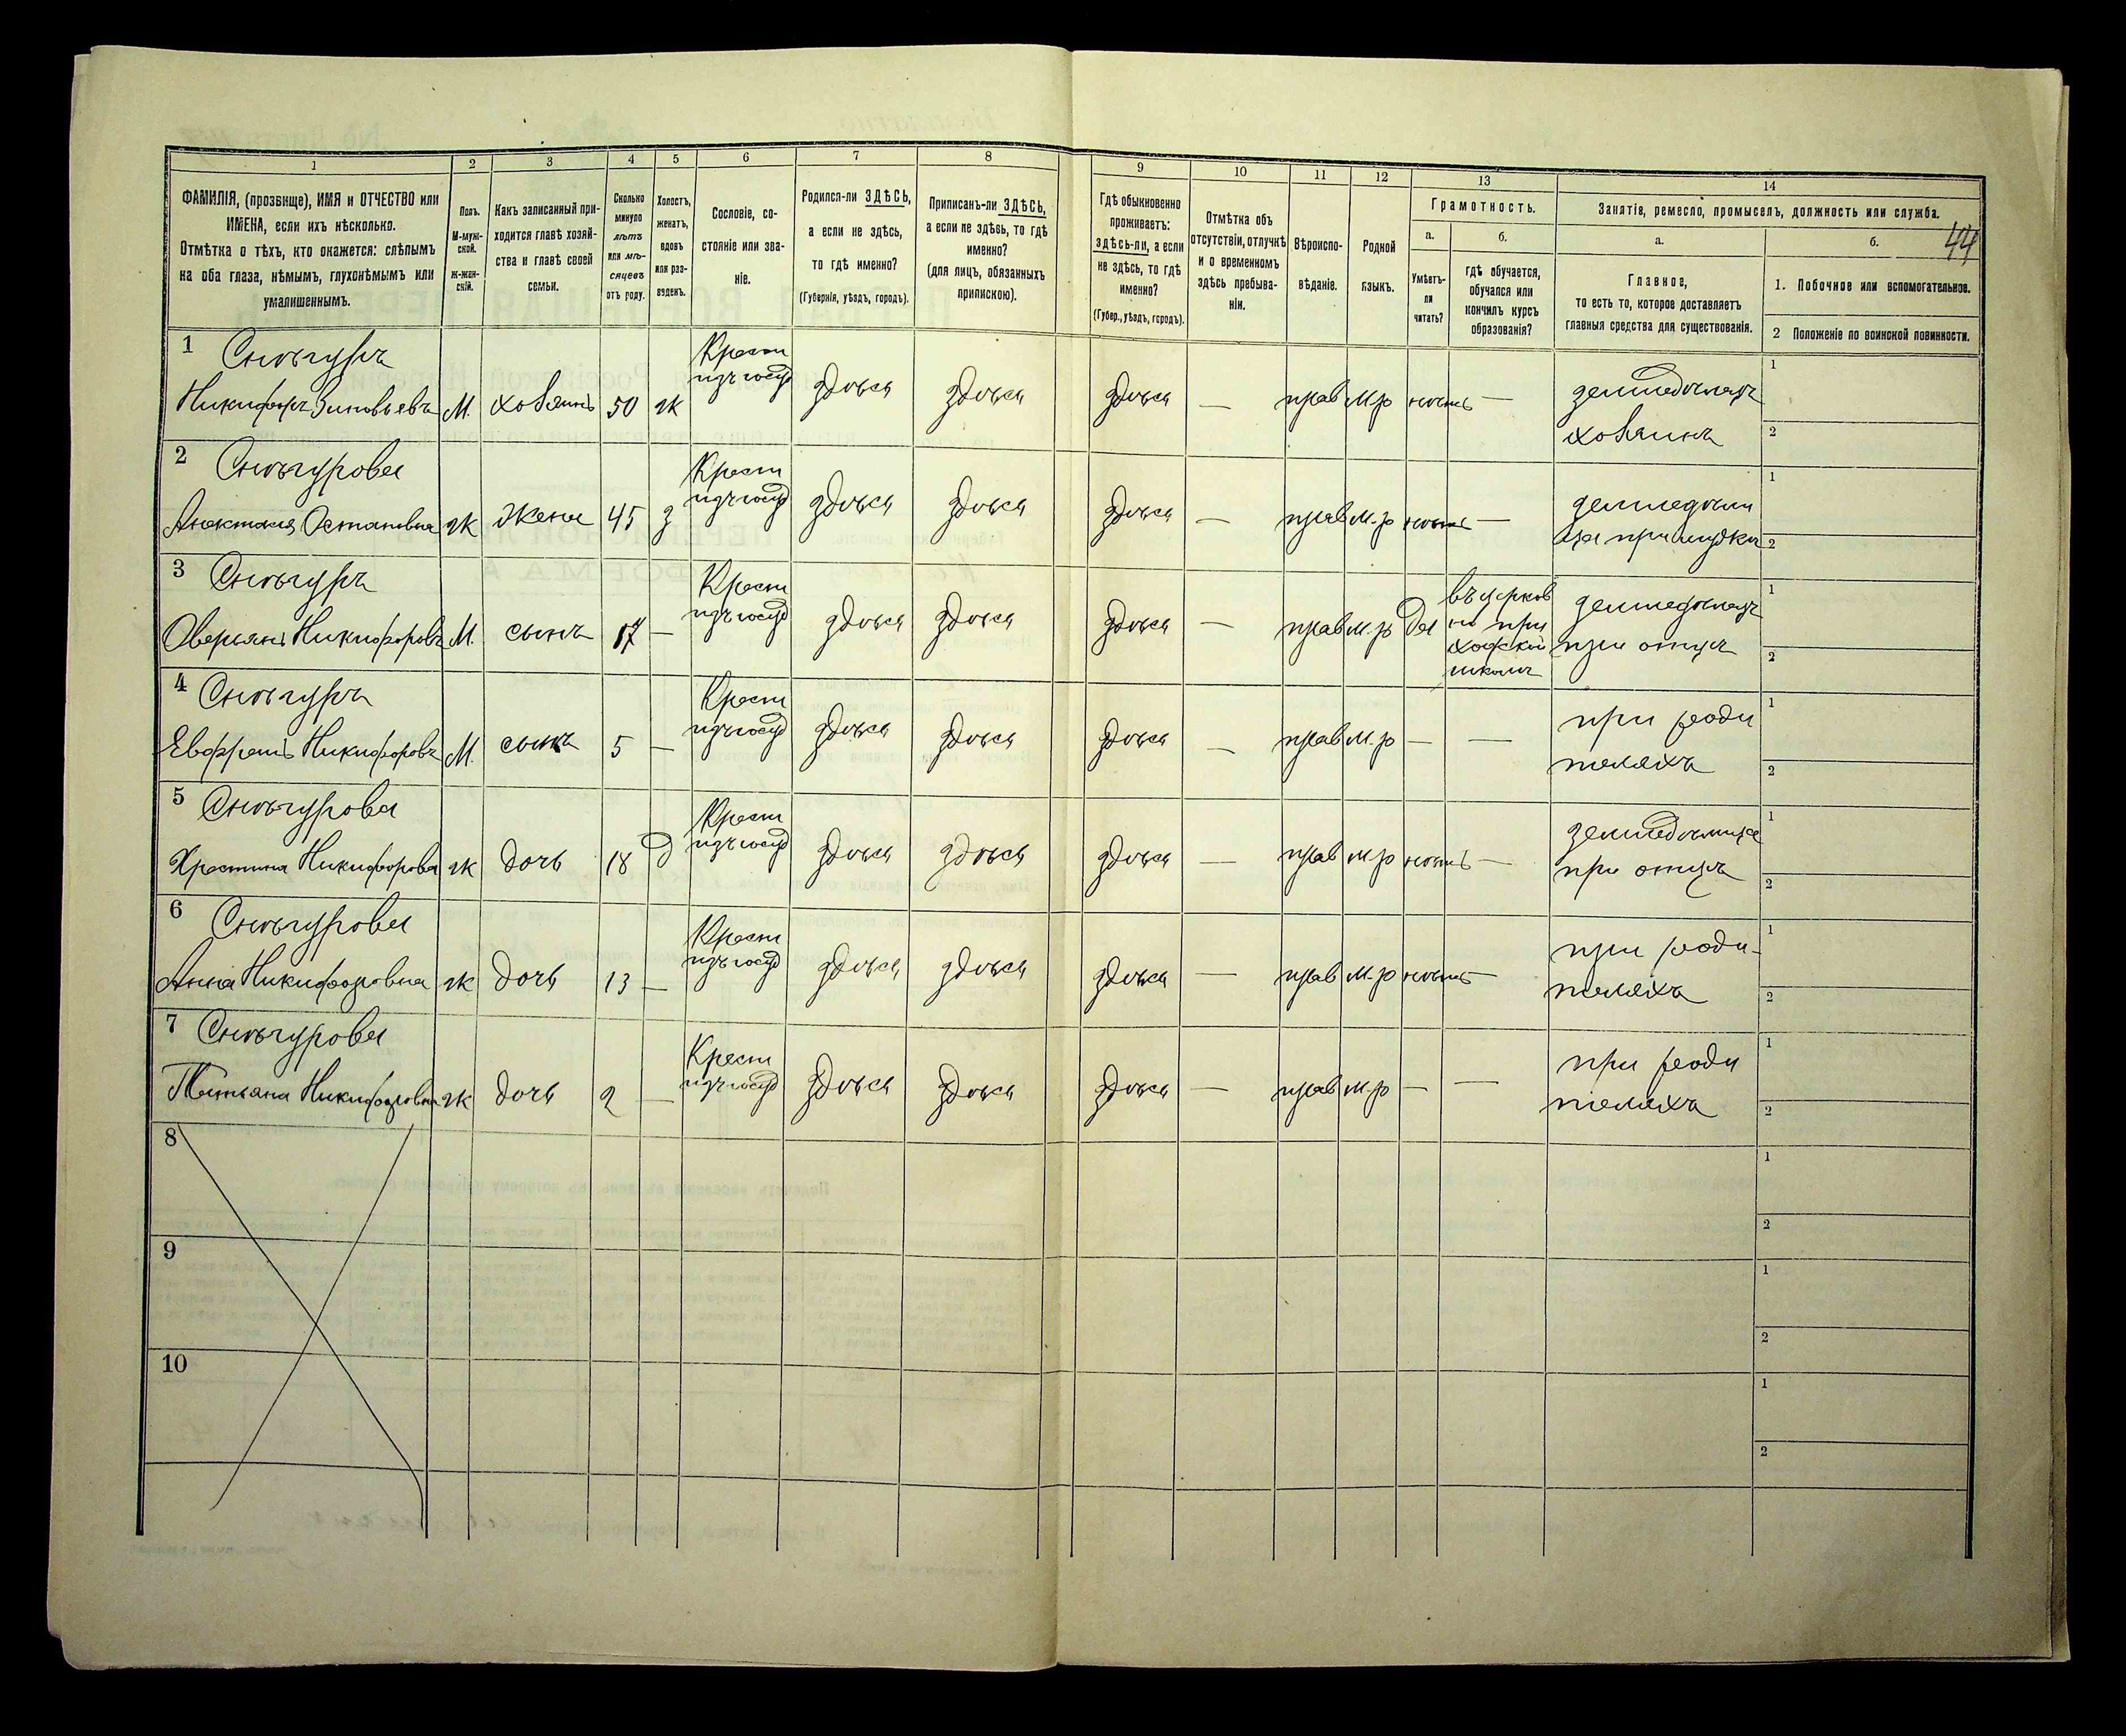 1 2 3 4 5 6 7 8 9 10 11 12 13 14
ФАМИЛІЯ, (прозвище), ИМЯ и ОТЧЕСТВО или
ИМЕНА, если ихъ нѣсколько.
Отмѣтка о тѣхъ, кто окажется: слѣпымъ
на оба глаза, нѣмымъ, глухонѣмымъ или
умалишеннымъ.
Полъ.
М-муж-
ской.
ж-жен-
скій.
Какъ записанный при-
ходится главѣ хозяй-
ства и главѣ своей
семьи.
Сколько
минуло
лѣтъ
или мѣ-
сяцевъ
отъ роду.
Холостъ,
женатъ,
вдовъ
или раз-
веденъ.
Сословіе, со-
стояніе или зва-
ніе.
Родился-ли ЗДѢСЬ,
а если не здѣсь,
то гдѣ именно?
(Губернія, уѣздъ, городъ).
Приписанъ-ли ЗДѢСЬ,
а если не здѣсь, то гдѣ
именно?
(для лицъ, обязанныхъ
припискою).
Гдѣ обыкновенно
проживаетъ:
здѣсь-ли, а если
не здѣсь, то гдѣ
именно?
(Губер., уѣздъ, городъ).
Отмѣтка объ
отсутствіи, отлучкѣ
и о временномъ
здѣсь пребыва-
ніи.
Вѣроиспо-
вѣданіе.
Родной
языкъ.
Грамотность.
а.
Умѣетъ-
ли
читать?
б.
гдѣ обучается,
обучался или
кончилъ курсъ
образованія?
Занятіе, ремесло, промыселъ, должность или служба.
44
а.
Главное,
то есть то, которое доставляетъ
главныя средства для существованія.
б.
1. Побочное или вспомогательное.
2 Положеніе по воинской повинности.
1 Снѣгуръ Крест 1
Никифоръ Зиновьевъ М. хозяинъ 50 ж изъ госуд здѣсь здѣсь здѣсь — прав м.р нѣтъ — земледѣлецъ
хозяинъ 2
2 Снѣгурова Крест 1
Остаповна ж жена 45 з изъ госуд здѣсь здѣсь здѣсь — прав м.р нѣтъ —
при мужѣ 2
3 Снѣгуръ Крест въ церков 1
Оверьянъ Никифоровъ М. сынъ 17 — изъ госуд здѣсь здѣсь здѣсь — прав м.р да но при земледѣлецъ
ходской при отцѣ 2
школѣ
4 Снѣгуръ Крест при роди 1
Никифоровъ М. сынъ 5 — изъ госуд здѣсь здѣсь здѣсь — прав м.р — —
теляхъ 2
5 Снѣгурова Крест земледѣлица 1
Христина Никифорова ж дочь 18 д изъ госуд здѣсь здѣсь здѣсь — прав м.р нѣтъ —
при отцѣ 2
6 Снѣгурова Крест при роди- 1
Анна Никифоровна ж дочь 13 — изъ госуд здѣсь здѣсь здѣсь — прав м.р нѣтъ —
теляхъ 2
7 Снѣгурова Крест при роди 1
Татьяна Никифоровна ж дочь 2 — изъ госуд здѣсь здѣсь здѣсь — прав м.р — —
теляхъ 2
8 1
2
9 1
2
10 1
2